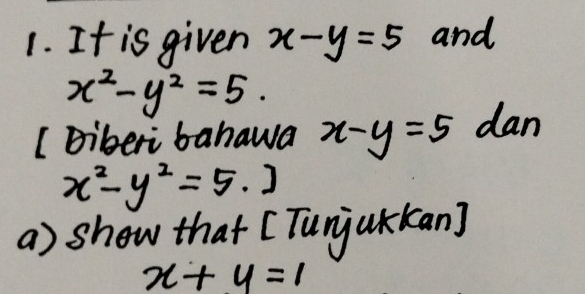 1. It is given x-y=5 and
x²-y²=5.
[Diberi bahawa x-y=5 dan
x²-y²=5.]
a) Show that [Tunjukkan]
x+y=1